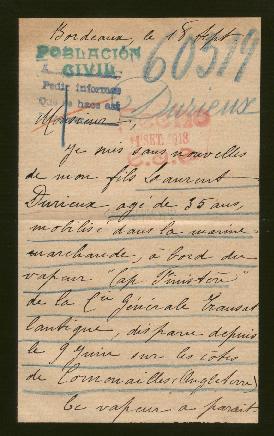 Bordeaux, le 18 Sept
POBLACIÓN
CIVIL
Pedir informes
Que se hace así
60519
Durieux
SET. 1918
Monsieur
Je suis sans nouvelles
de mon fils Laurent
Durieux, agé de 35 ans,
mobilisé dans la marine
marchande, à bord du
vapeur "Cap Finistère"
de la Cie Générale Transat
lantique, disparu depuis
le 9 Juin sur les côtes
de Cornouailles (Angleterre)
Ce vapeur a parait-